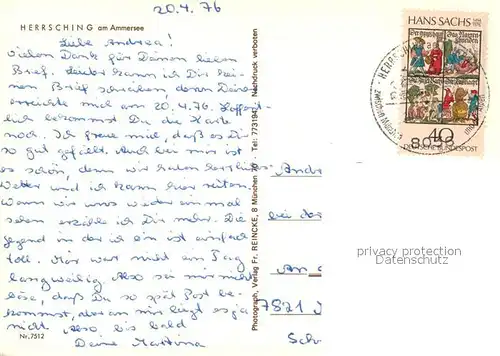 20.4.76
HERRSCHING am Ammersee
Liebe Andrea!
Vielen Dank für Deinen lieben
Brief. Leider kann ich Dir kei-
nen Brief schreiben, denn Deiner
erreichte mich am 20.4.76. Hoffent-
lich bekommst Du die Karte
noch. Ich freue mich, daß es Dir
so gut gefällt. Auch bei mir ist
es schön, denn wir haben herrliches
Wetter und ich kann hier reiten.
Wann wir uns wieder einmal
sehen erzähle ich Dir mehr. Die
Gegend in der ich bin ist einfach
toll. Mir war nicht ein Tag
langweilig. Also sei mir nicht
böse, daß Du so spät Post be-
kommst, aber an mir liegt es ja
nicht. Also bis bald
Deine Martina
Nr. 7512
Photograph, Verlag Fr. REINCKE, 8 München 80 · Tel: 7731947 Nachdruck verboten
HANS SACHS
40
DEUTSCHE BUNDESPOST
HERRSCHING
Andr
bei der
An d
7821
Sch
privacy protection
Datenschutz